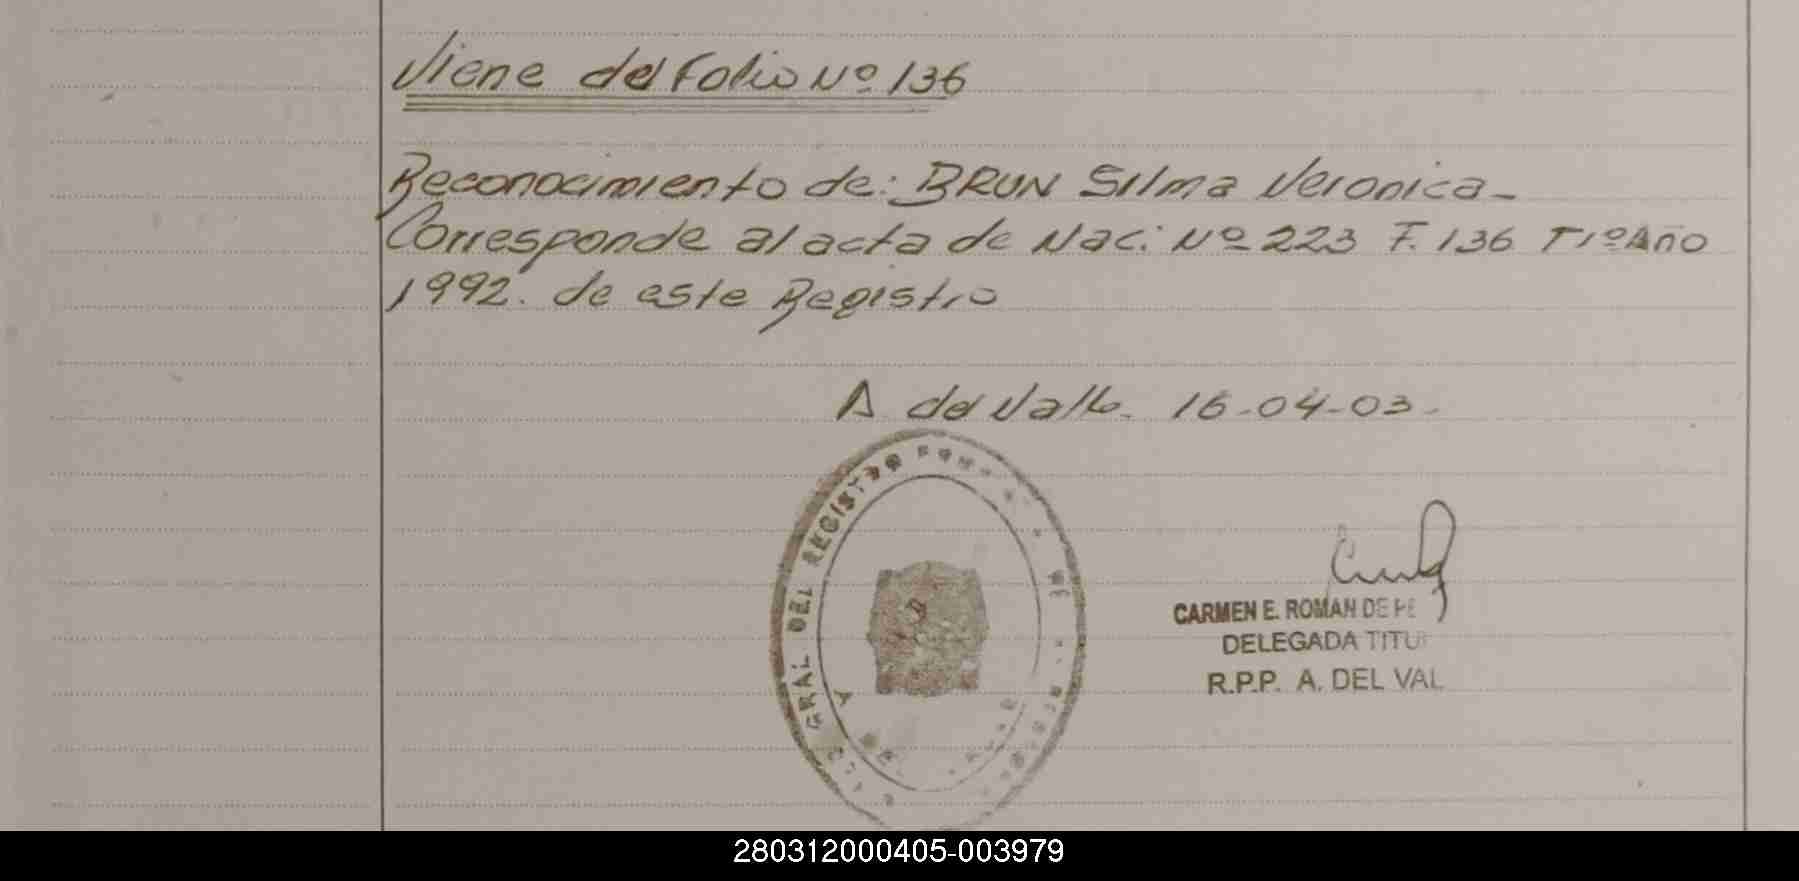 Viene del Folio Nº 136
Reconocimiento de: BRUN Silma Veronica -
Corresponde al acta de Nac: Nº 223 F. 136 T 1º Año
1992. de este Registro
A del Valle. 16-04-03-
GRAL DEL REGISTRO
CARMEN E. ROMAN DE PE
DELEGADA TITU
R.P.P. A. DEL VAL
280312000405-003979